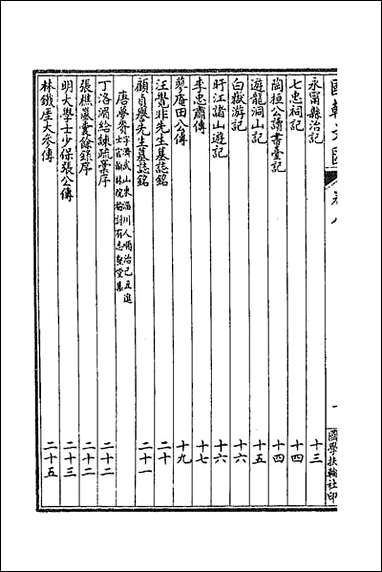 國朝文匯 卷八 一 國學扶輪社印
永甯縣治記 十三
七忠祠記 十四
陶桓公讀書臺記 十四
遊龍洞山記 十五
白嶽游記 十六
盱江諸山遊記 十六
李忠肅傳 十七
蓼庵田公傳 十九
汪覺非先生墓誌銘 二十
顧貞譽先生墓誌銘 二十一
唐夢賚 字濟武山東淄川人順治己丑進士官翰林院檢討有志壑堂集
丁洛湄給諫疏藁序 二十二
張樵嵐囊餘錄序 二十二
明大學士少保張公傳 二十三
林鐵厓大參傳 二十五